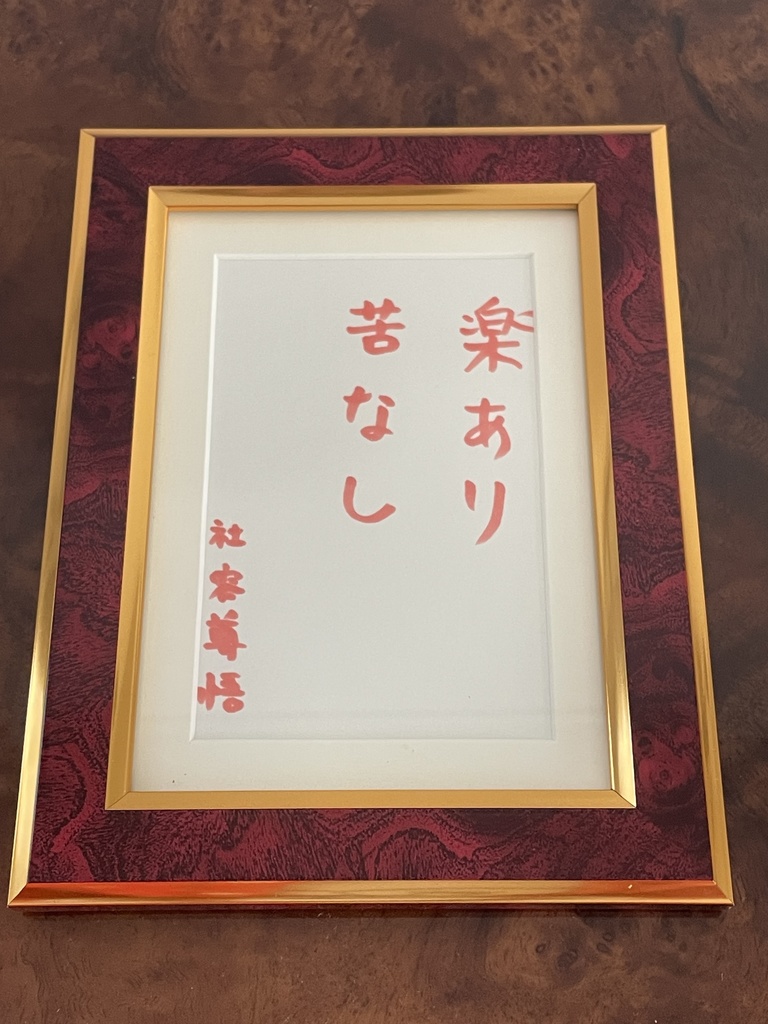 楽あり
苦なし
社容尊悟